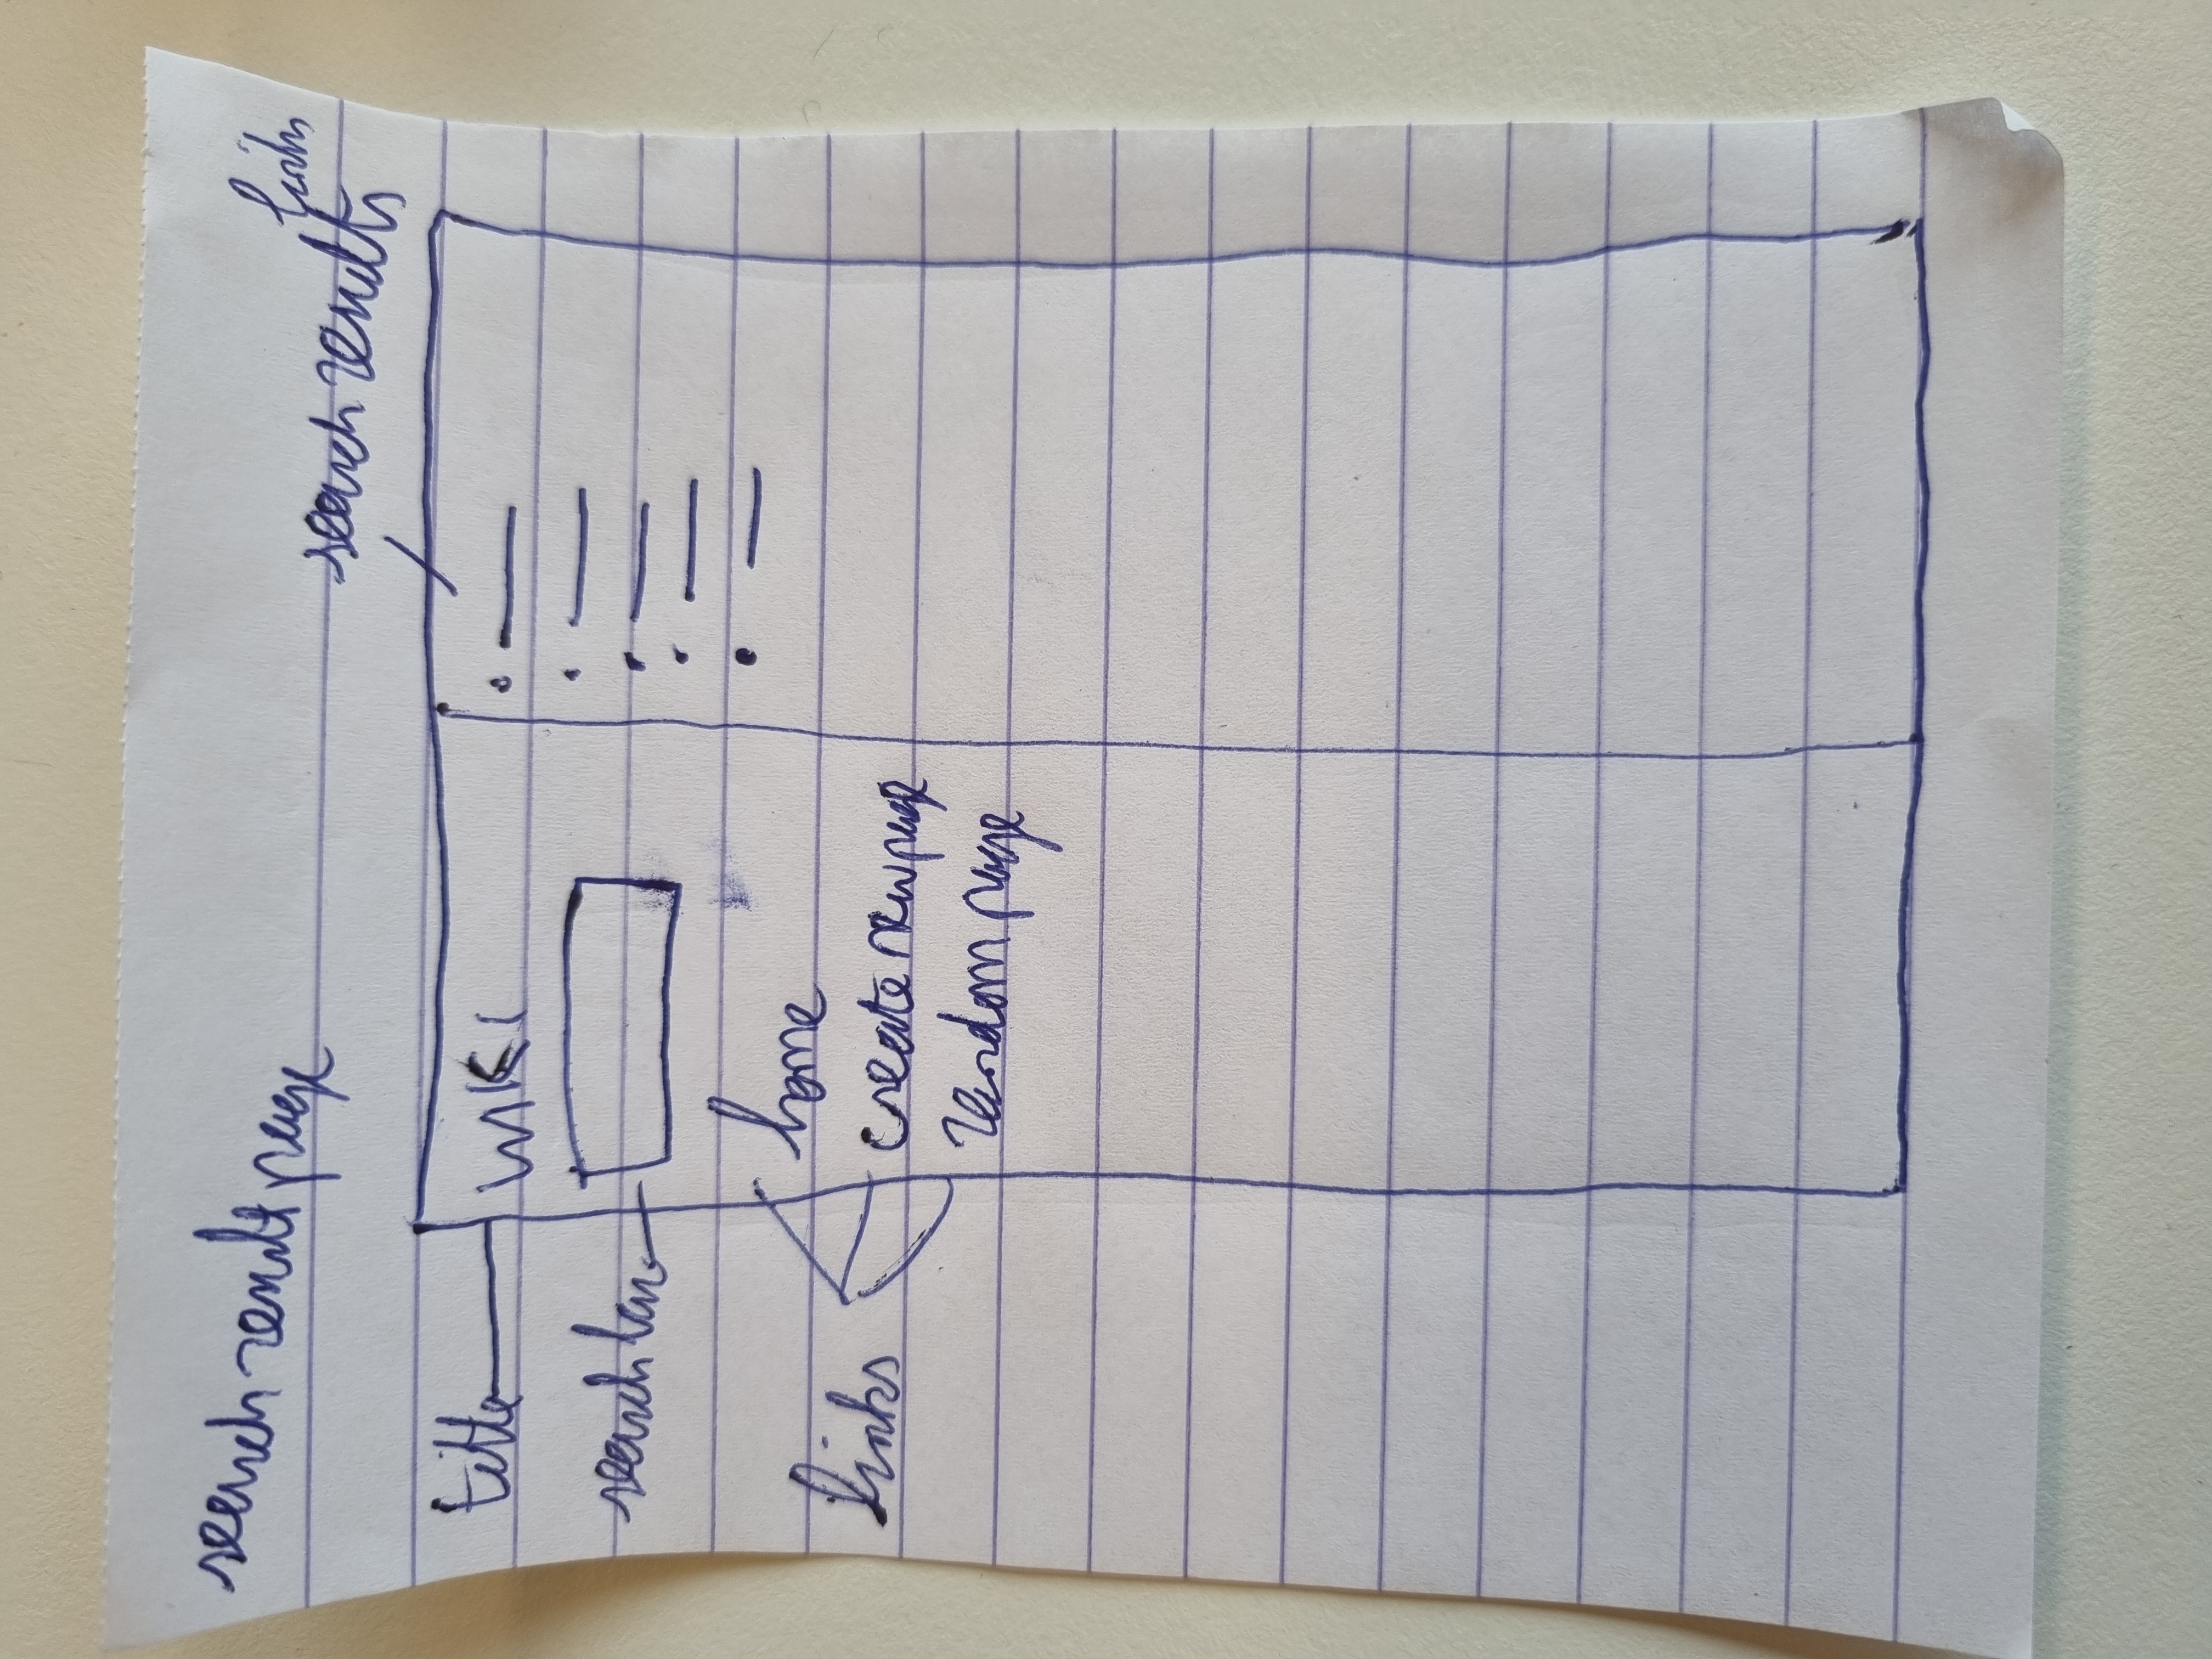 search result page
links
search results
title
WIKI
search bar
home
links
create new page
random page